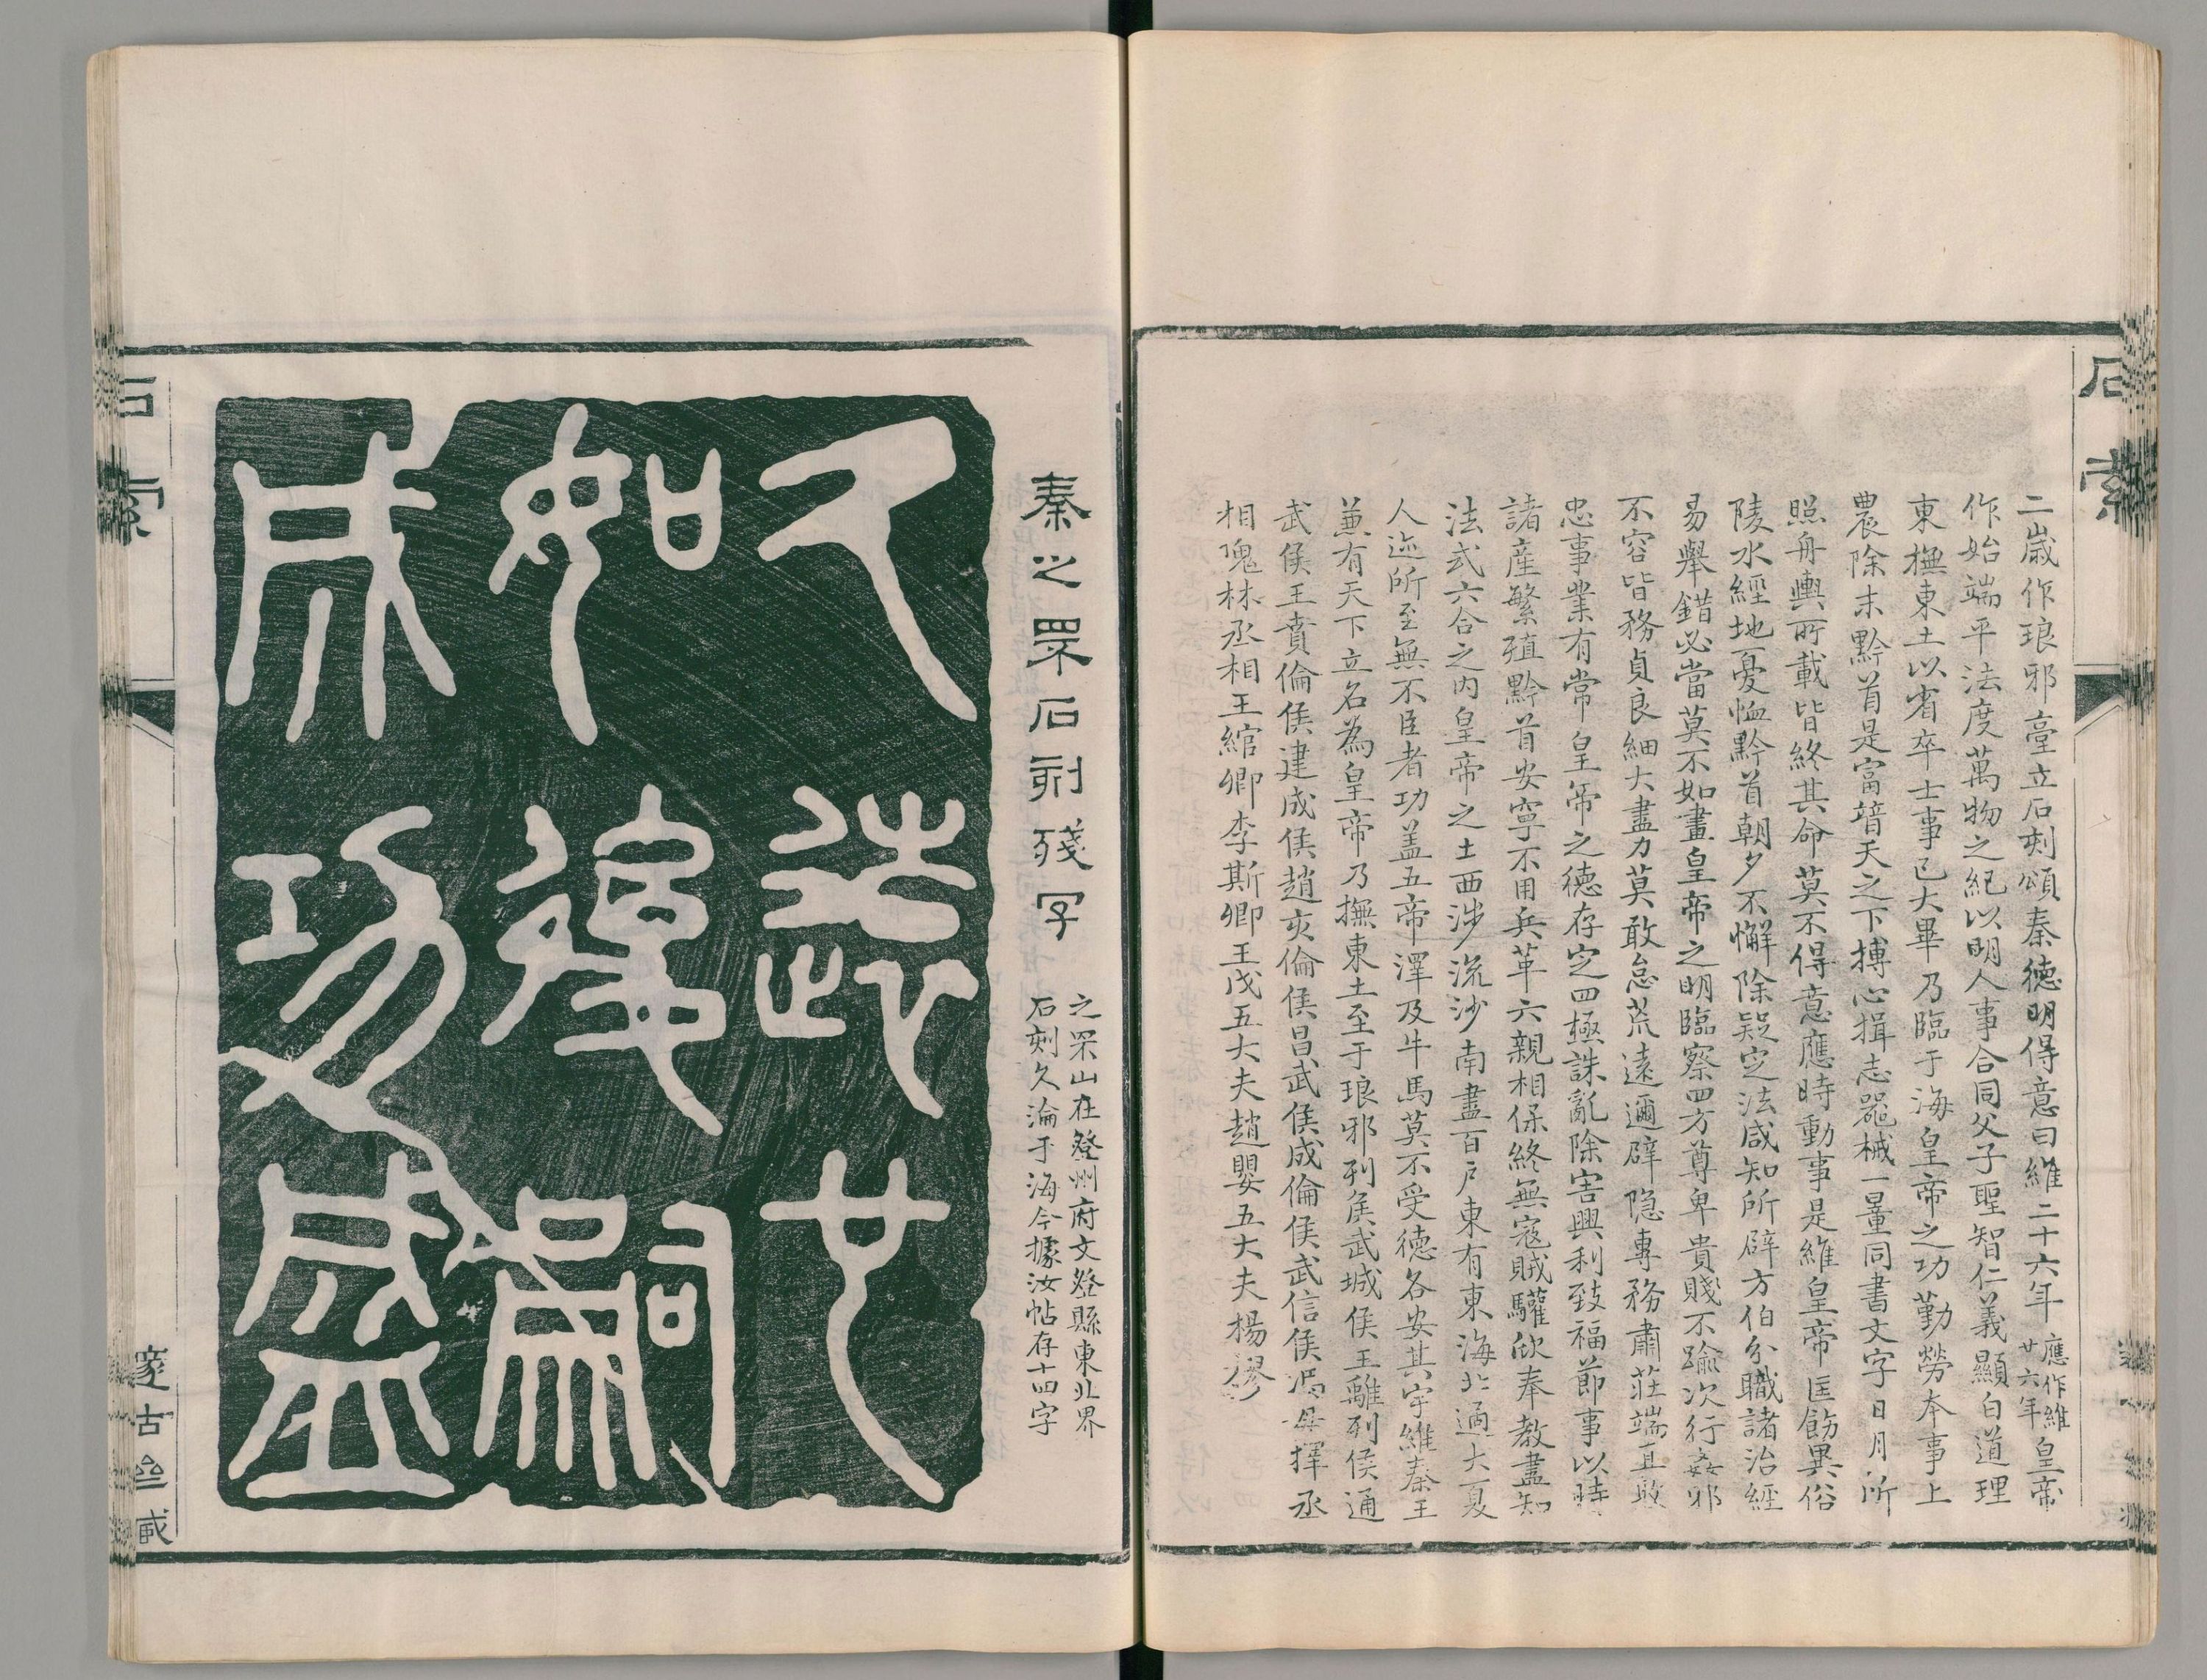 石索
二歲作琅邪臺立石刻頌秦德明得意曰維二十六年應作維廿六年皇帝
作始端平法度萬物之紀以明人事合同父子聖智仁義顯白道理
東撫東土以省卒士事已大畢乃臨于海皇帝之功勤勞本事上
農除末黔首是富暜天之下摶心揖志器械一量同書文字日月所
照舟輿所載皆終其命莫不得意應時動事是維皇帝匡飭異俗
陵水經地憂恤黔首朝夕不懈除疑定法咸知所辟方伯分職諸治經
易舉錯必當莫不如畫皇帝之明臨察四方尊卑貴賤不踰次行姦邪
不容皆務貞良細大盡力莫敢怠荒遠邇辟隱專務肅莊端直敦
忠事業有常皇帝之德存定四極誅亂除害興利致福節事以時
諸產繁殖黔首安寧不用兵革六親相保終無寇賊驩欣奉教盡知
法式六合之內皇帝之土西涉流沙南盡百戶東有東海北過大夏
人迹所至無不臣者功蓋五帝澤及牛馬莫不受德各安其宇維秦王
兼有天下立名為皇帝乃撫東土至于琅邪列侯武城侯王離列侯通
武侯王賁倫侯建成侯趙亥倫侯昌武侯成倫侯武信侯馮毋擇丞
相隗林丞相王綰卿李斯卿王戊五大夫趙嬰五大夫楊摎
秦之罘石刻殘字
之罘山在登州府文登縣東北界
石刻久淪于海今據汝帖存十四字
久遠也
如後嗣
成功盛
石索
邃古亝臧